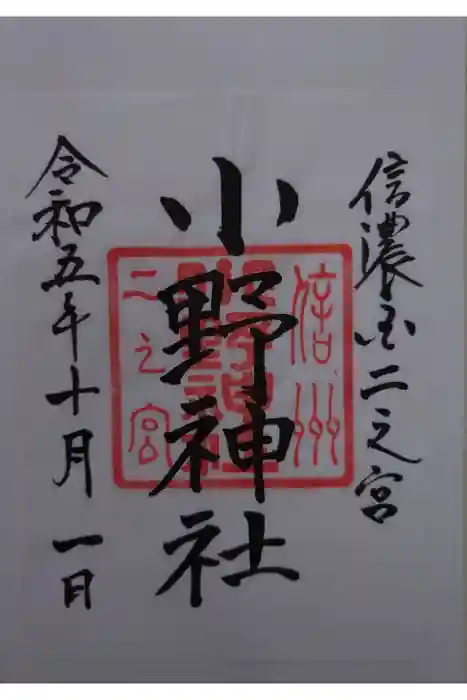 信濃国二之宮
小野神社
信州
二之宮
令和五年十月一日